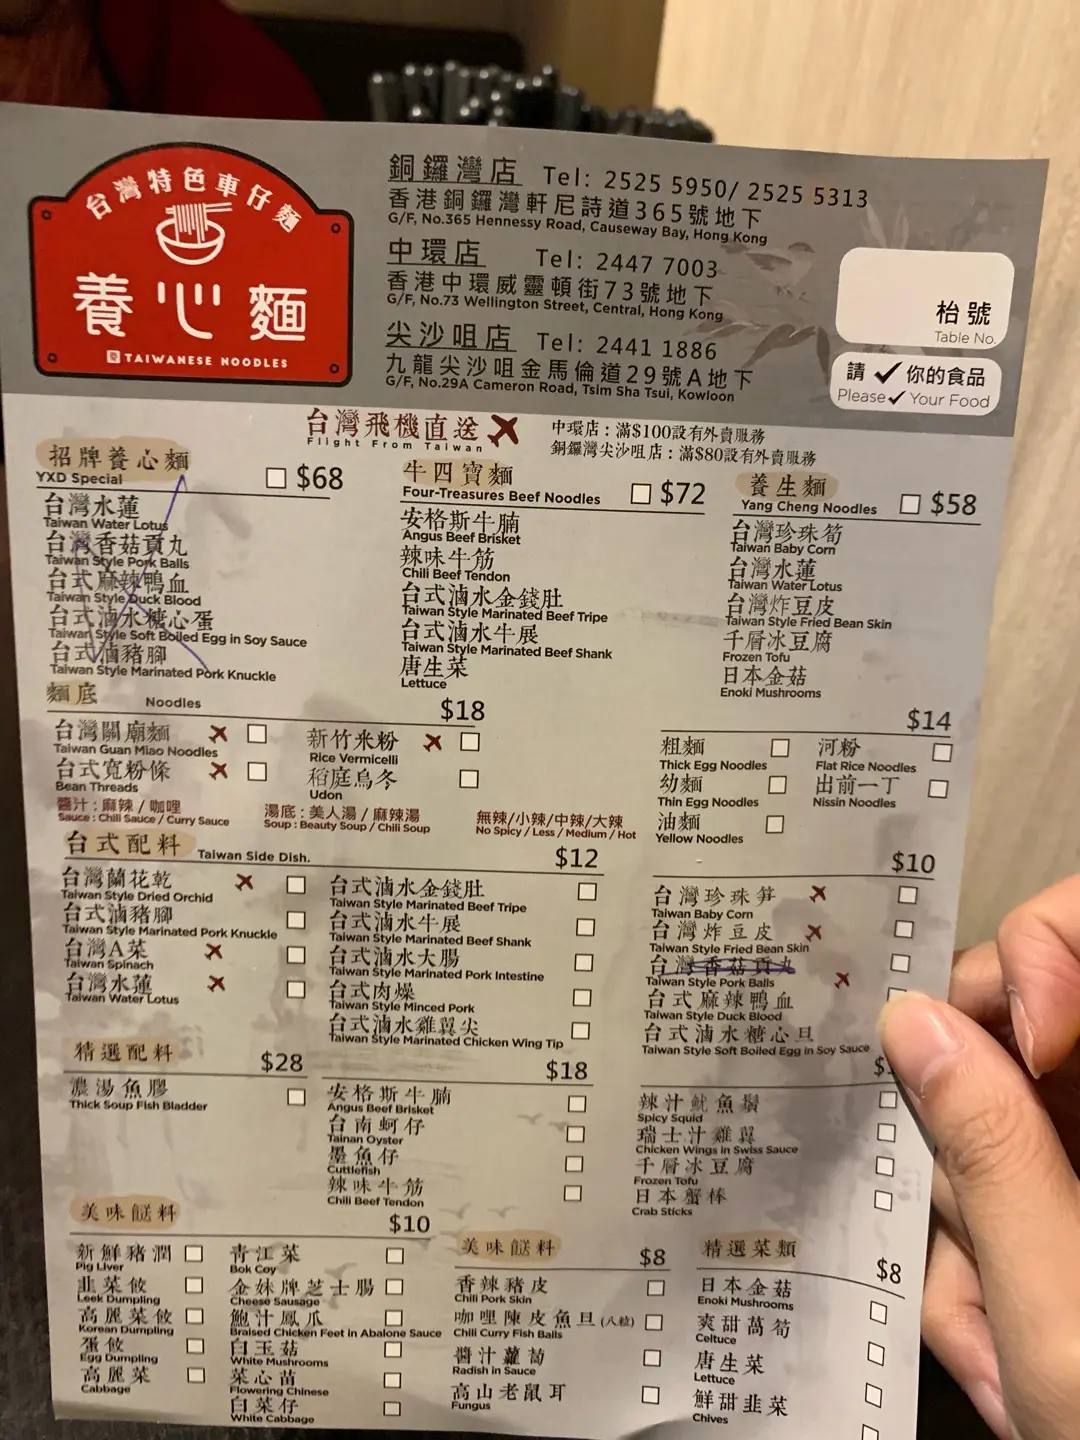 台灣特色車仔麵
養心麵
TAIWANESE NOODLES
銅鑼灣店 Tel: 2525 5950/ 2525 5313
香港銅鑼灣軒尼詩道365號地下
G/F, No.365 Hennessy Road, Causeway Bay, Hong Kong
中環店 Tel: 2447 7003
香港中環威靈頓街73號地下
G/F, No.73 Wellington Street, Central, Hong Kong
尖沙咀店 Tel: 2441 1886
九龍尖沙咀金馬倫道29號A地下
G/F, No.29A Cameron Road, Tsim Sha Tsui, Kowloon
枱號
Table No.
請✓你的食品
Please✓Your Food
台灣飛機直送
Flight From Taiwan
中環店：滿$100設有外賣服務
銅鑼灣尖沙咀店：滿$80設有外賣服務
招牌養心麵 $68
YXD Special
台灣水蓮
Taiwan Water Lotus
台灣香菇貢丸
Taiwan Style Pork Balls
台式麻辣鴨血
Taiwan Style Duck Blood
台式滷水糖心蛋
Taiwan Style Soft Boiled Egg in Soy Sauce
台式滷豬腳
Taiwan Style Marinated Pork Knuckle
牛四寶麵 $72
Four-Treasures Beef Noodles
安格斯牛腩
Angus Beef Brisket
辣味牛筋
Chili Beef Tendon
台式滷水金錢肚
Taiwan Style Marinated Beef Tripe
台式滷水牛展
Taiwan Style Marinated Beef Shank
唐生菜
Lettuce
養生麵 $58
Yang Cheng Noodles
台灣珍珠筍
Taiwan Baby Corn
台灣水蓮
Taiwan Water Lotus
台灣炸豆皮
Taiwan Style Fried Bean Skin
千層冰豆腐
Frozen Tofu
日本金菇
Enoki Mushrooms
麵底 Noodles $18
台灣關廟麵
Taiwan Guan Miao Noodles
台式寬粉條
Bean Threads
新竹米粉
Rice Vermicelli
稻庭烏冬
Udon
$14
粗麵
Thick Egg Noodles
幼麵
Thin Egg Noodles
油麵
Yellow Noodles
河粉
Flat Rice Noodles
出前一丁
Nissin Noodles
醬汁：麻辣 / 咖哩
Sauce : Chili Sauce / Curry Sauce
湯底：美人湯 / 麻辣湯
Soup : Beauty Soup / Chili Soup
無辣/小辣/中辣/大辣
No Spicy / Less / Medium / Hot
台式配料 Taiwan Side Dish. $12
台灣蘭花乾
Taiwan Style Dried Orchid
台式滷豬腳
Taiwan Style Marinated Pork Knuckle
台灣A菜
Taiwan Spinach
台灣水蓮
Taiwan Water Lotus
台式滷水金錢肚
Taiwan Style Marinated Beef Tripe
台式滷水牛展
Taiwan Style Marinated Beef Shank
台式滷水大腸
Taiwan Style Marinated Pork Intestine
台式肉燥
Taiwan Style Minced Pork
台式滷水雞翼尖
Taiwan Style Marinated Chicken Wing Tip
$10
台灣珍珠笋
Taiwan Baby Corn
台灣炸豆皮
Taiwan Style Fried Bean Skin
台灣香菇貢丸
Taiwan Style Pork Balls
台式麻辣鴨血
Taiwan Style Duck Blood
台式滷水糖心旦
Taiwan Style Soft Boiled Egg in Soy Sauce
精選配料 $28
濃湯魚膠
Thick Soup Fish Bladder
$18
安格斯牛腩
Angus Beef Brisket
台南蚵仔
Tainan Oyster
墨魚仔
Cuttlefish
辣味牛筋
Chili Beef Tendon
辣汁魷魚鬚
Spicy Squid
瑞士汁雞翼
Chicken Wings in Swiss Sauce
千層冰豆腐
Frozen Tofu
日本蟹棒
Crab Sticks
美味餸料 $10
新鮮豬潤
Pig Liver
韭菜餃
Leek Dumpling
高麗菜餃
Korean Dumpling
蛋餃
Egg Dumpling
高麗菜
Cabbage
青江菜
Bok Coy
金妹牌芝士腸
Cheese Sausage
鮑汁鳳爪
Braised Chicken Feet in Abalone Sauce
白玉菇
White Mushrooms
菜心苗
Flowering Chinese
白菜仔
White Cabbage
美味餸料 $8
香辣豬皮
Chili Pork Skin
咖哩陳皮魚旦(八粒)
Chili Curry Fish Balls
醬汁蘿蔔
Radish in Sauce
高山老鼠耳
Fungus
精選菜類 $8
日本金菇
Enoki Mushrooms
爽甜萵筍
Celtuce
唐生菜
Lettuce
鮮甜韭菜
Chives